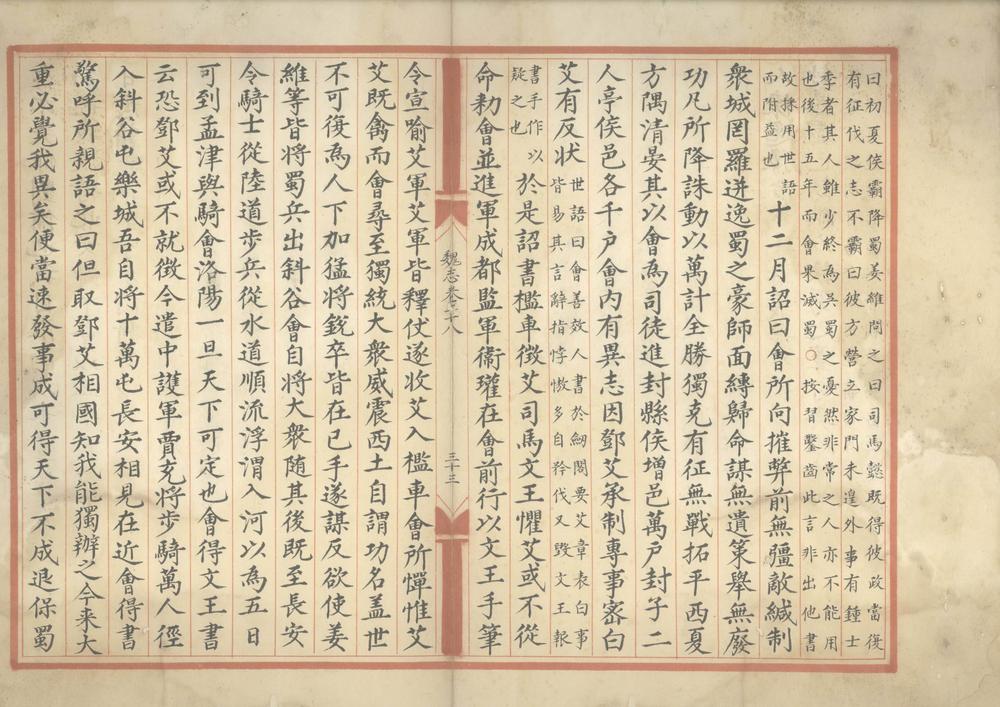 曰初夏侯霸降蜀姜維問之曰司馬懿既得彼政當復
有征伐之志不霸曰彼方營立家門未遑外事有鍾士
季者其人雖少終為吳蜀之憂然非常之人亦不能用
也後十五年而會果滅蜀○按習鑿齒此言非出他書
故採用世語
而附益也
十二月詔曰會所向摧弊前無彊敵緘制
衆城罔羅迸逸蜀之豪帥面縛歸命謀無遺策舉無廢
功凡所降誅動以萬計全勝獨克有征無戰拓平西夏
方隅清晏其以會為司徒進封縣侯增邑萬户封子二
人亭侯邑各千户會內有異志因鄧艾承制專事密白
艾有反狀
世語曰會善效人書於劒閣要艾章表白事
皆易其言辭指悖慠多自矜伐又毀文王報
書手作以
疑之也
於是詔書檻車徵艾司馬文王懼艾或不從
命勑會並進軍成都監軍衛瓘在會前行以文王手筆
魏志卷二十八
三十三
令宣喻艾軍艾軍皆釋仗遂收艾入檻車會所憚惟艾
艾既禽而會尋至獨統大衆威震西土自謂功名盖世
不可復為人下加猛將銳卒皆在已手遂謀反欲使姜
維等皆將蜀兵出斜谷會自將大衆随其後既至長安
令騎士從陸道步兵從水道順流浮渭入河以為五日
可到孟津與騎會洛陽一旦天下可定也會得文王書
云恐鄧艾或不就徵今遣中護軍賈充將步騎萬人徑
入斜谷屯樂城吾自將十萬屯長安相見在近會得書
驚呼所親語之曰但取鄧艾相國知我能獨辦之今来大
重必覺我異矣便當速發事成可得天下不成退保蜀